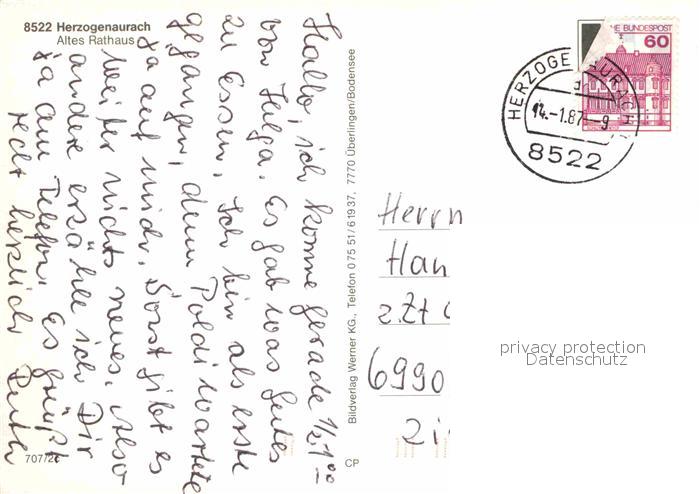 8522 Herzogenaurach
Altes Rathaus
Hallo, ich komme gerade 1/2 1 00
von Helga. Es gab was gutes
zu Essen. Ich bin als erste
gegangen, denn Poldi wartete
ja auf mich. Sonst gibt es
weiter nichts neues. Also
andere erzähle ich Dir
ja am Telefon. Es grüßt
recht herzlich Ruth
707/2
CP
Bildverlag Werner KG., Telefon 0 75 51/6 19 37, 7770 Überlingen/Bodensee
HE BUNDESPOST
60
HERZOGENAURACH
14.-1.87-9
8522
Herrn
Han
z.Zt
6990
privacy protection
Datenschutz